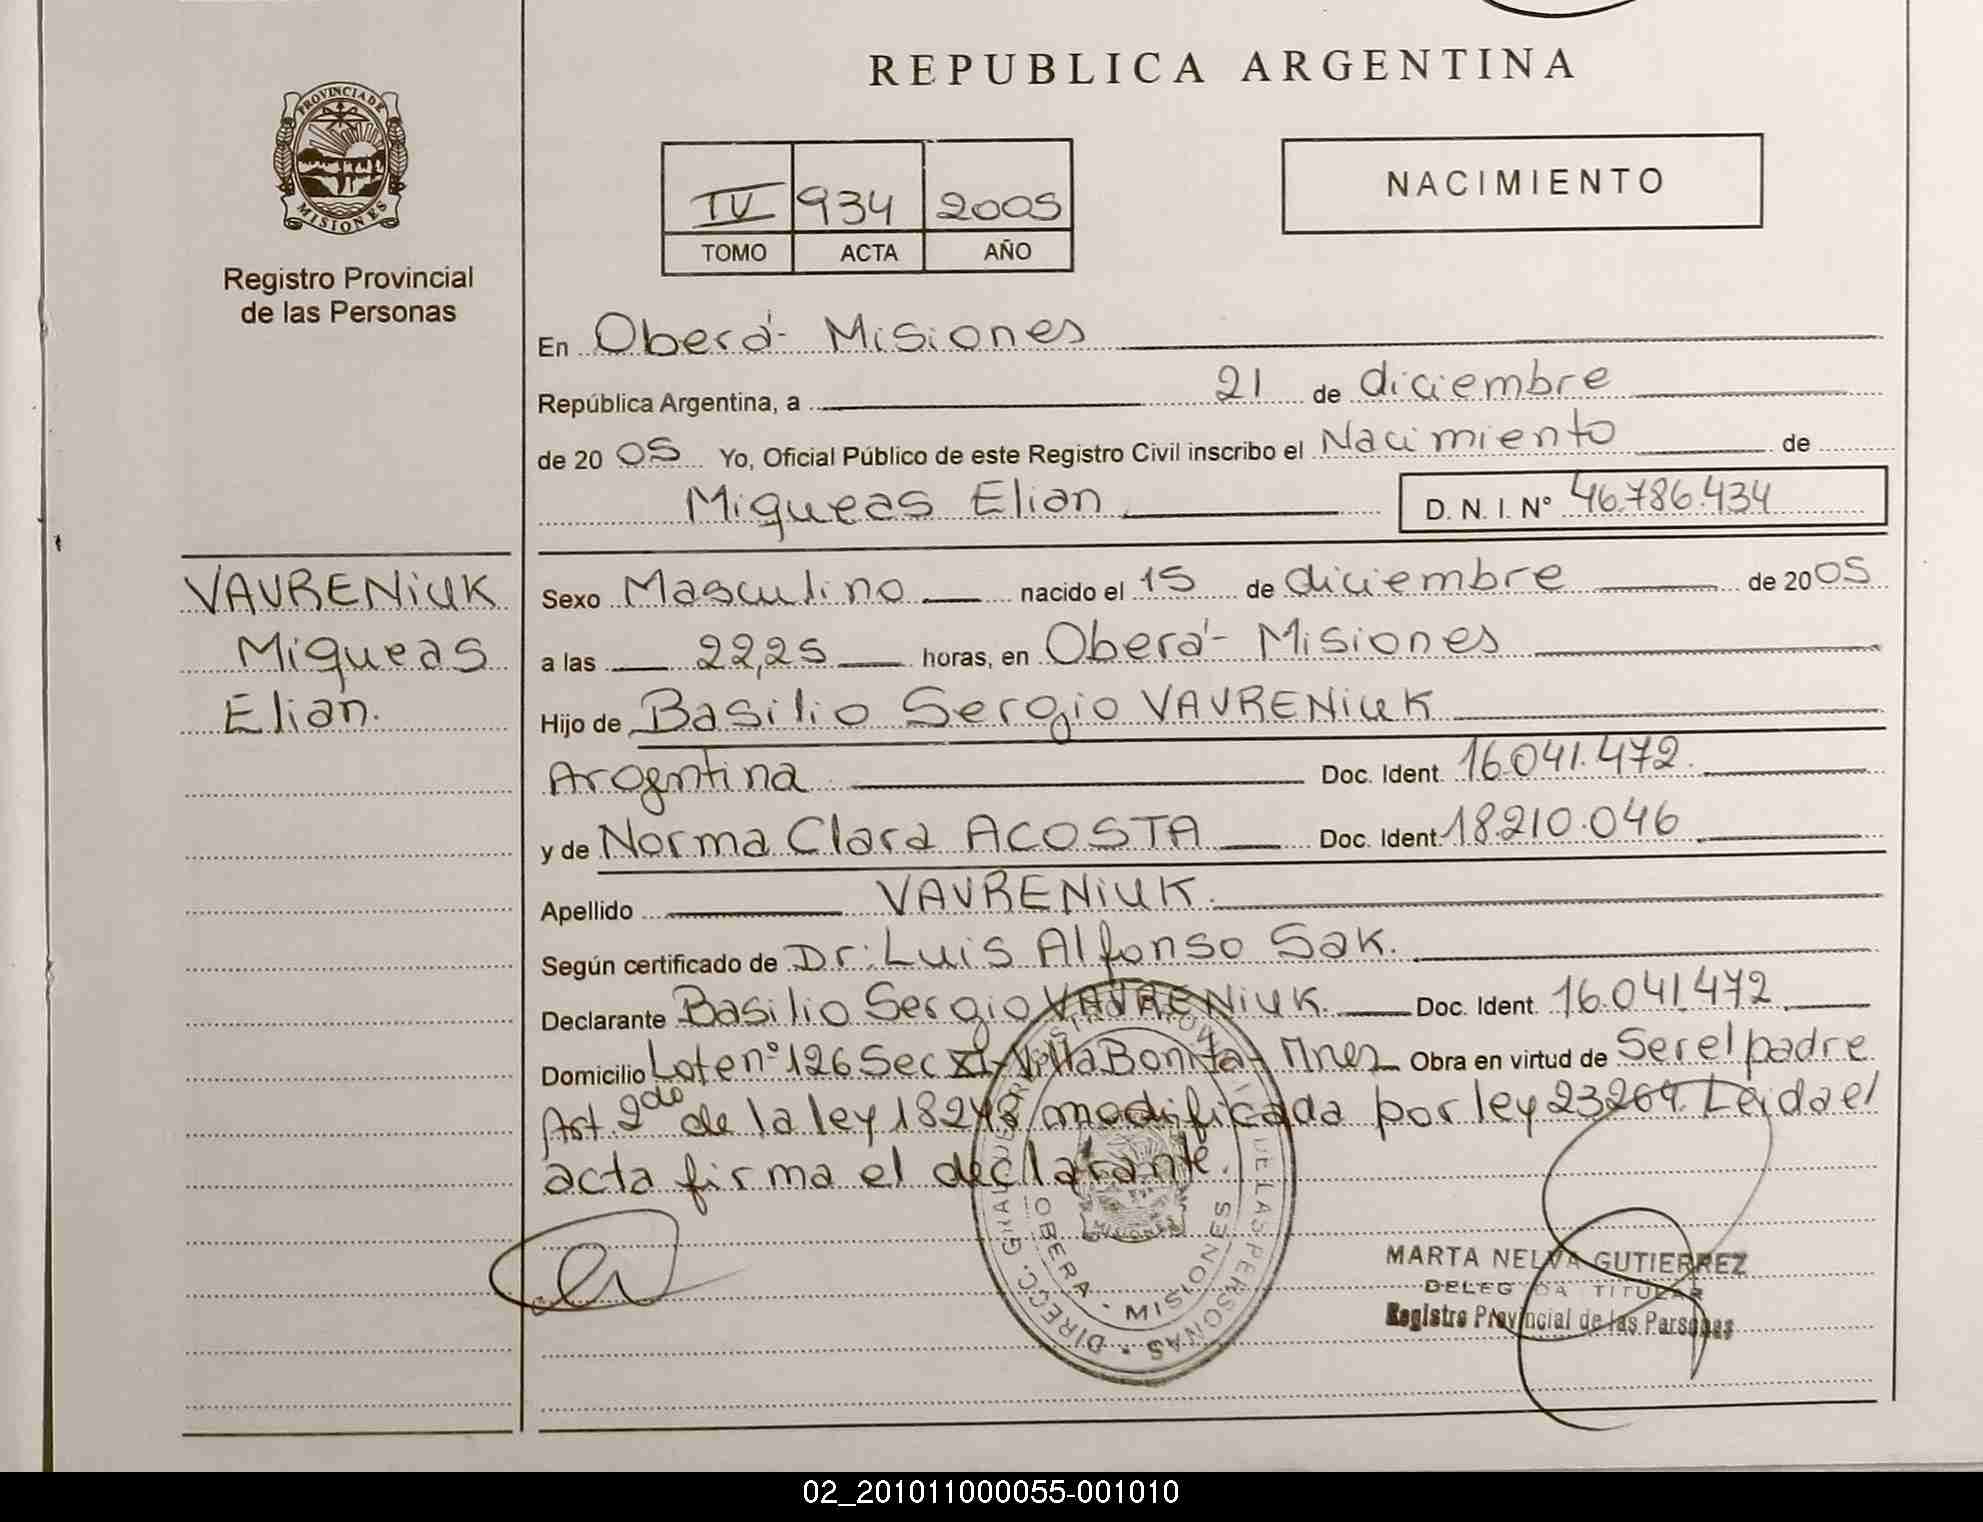 REPUBLICA ARGENTINA
PROVINCIA DE
MISIONES
Registro Provincial
de las Personas
IV 934 2005
TOMO ACTA AÑO
NACIMIENTO
En Oberá - Misiones
República Argentina, a 21 de diciembre
de 2005 Yo, Oficial Público de este Registro Civil inscribo el Nacimiento de
Miqueas Elian D. N. I. Nº 46.786.434
VAVRENiUK
Miqueas
Elian.
Sexo Masculino nacido el 15 de diciembre de 2005
a las 22,25 horas, en Oberá - Misiones
Hijo de Basilio Sergio VAVRENiUK
Argentina Doc. Ident. 16.041.472.
y de Norma Clara ACOSTA Doc. Ident. 18.210.046
Apellido VAVRENiUK.
Según certificado de Dr: Luis Alfonso Sak.
Declarante Basilio Sergio VAVRENiUK. Doc. Ident. 16.041.472
Domicilio Lote nº 126 Sec XI- Villa Bonita - Mnes Obra en virtud de Ser el padre
Art. 2do de la ley 18248 modificada por ley 23264. Leida el
acta firma el declarante.
DIRECC. GRAL. DE LAS PERSONAS
OBERA - MISIONES
MISIONES
MARTA NELVA GUTIERREZ
DELEGADA TITULAR
Registro Provincial de las Personas
02_201011000055-001010